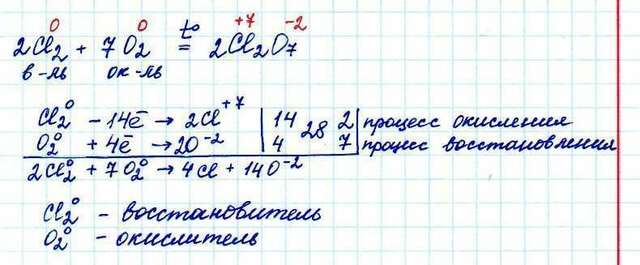 0 0 +7 -2
2Cl₂ + 7O₂ =ᵗ° 2Cl₂O₇
в-ль ок-ль
Cl₂⁰ - 14ē → 2Cl⁺⁷ | 14 28 2 | процесс окисления
O₂⁰ + 4ē → 2O⁻² | 4 7 | процесс восстановления
2Cl₂⁰ + 7O₂⁰ → 4Cl + 14O⁻²
Cl₂⁰ - восстановитель
O₂⁰ - окислитель